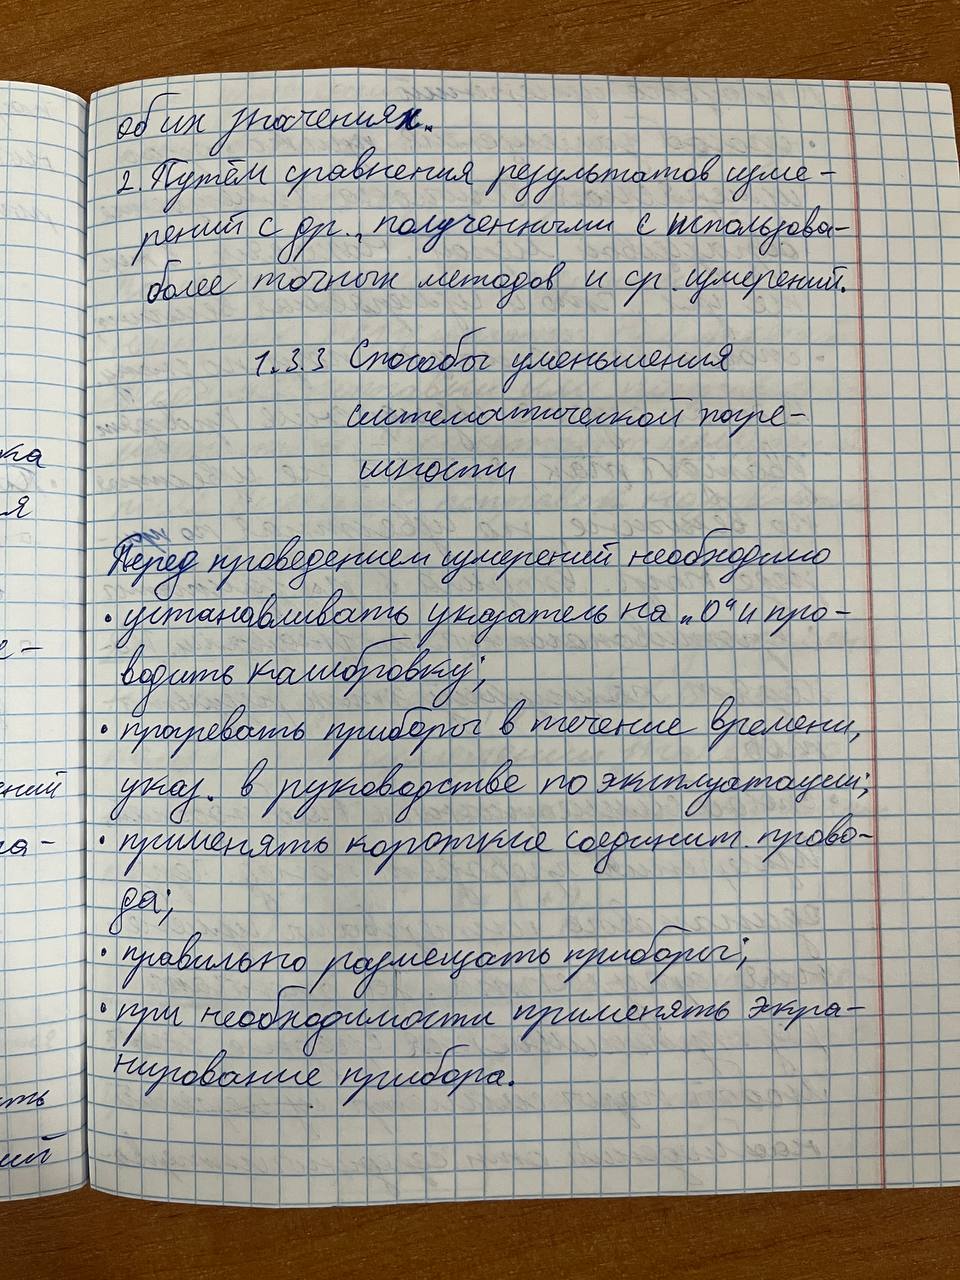 об их значениях.
2. Путём сравнения результатов изме-
рений с др., полученными с использова-
более точных методов и ср. измерений.
1.3.3 Способы уменьшения
систематической погре-
шности
Перед проведением измерений необходимо
• устанавливать указатель на „0“ и про-
водить калибровку;
• прогревать приборы в течение времени,
указ. в руководстве по эксплуатации;
• применять короткие соединит. прово-
да;
• правильно размещать приборы;
• при необходимости применять экра-
нирование прибора.